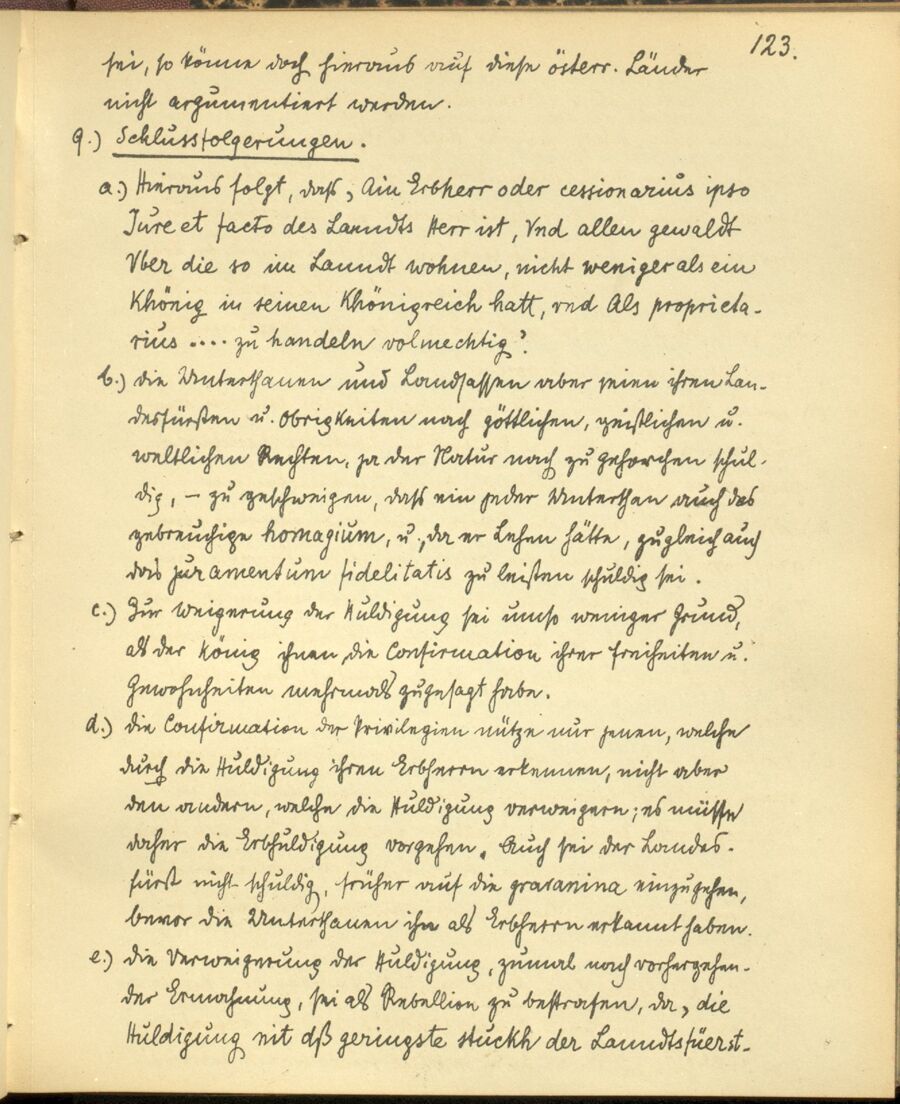 123.
sei, so könne doch hieraus auf diese österr. Länder
nicht argumentiert werden.
9.) Schlussfolgerungen.
a.) Hieraus folgt, daß „Ain Erbherr oder cessionarius ipso
Jure et facto des Lanndts Herr ist, Vnd allen gewaldt
Vber die so im Lanndt wohnen, nicht weniger als ein
Khönig in seinen Khönigreich hatt, vnd Als proprieta-
rius .... zu handeln volmechtig“.
b.) die Unterthanen und Landsassen aber seien ihren Lan-
desfürsten u. Obrigkeiten nach göttlichen, geistlichen u.
weltlichen Rechten, ja der Natur nach zu gehorchen schul-
dig, – zu geschweigen, daß ein jeder Unterthan auch das
gebreuchige homagium, u., da er Lehen hätte, zugleich auch
das juramentum fidelitatis zu leisten schuldig sei.
c.) Zur Weigerung der Huldigung sei umso weniger Grund,
als der König ihnen die Confirmation ihrer Freiheiten u.
Gewohnheiten mehrmals zugesagt habe.
d.) die Confirmation der Privilegien nütze nur jenen, welche
durch die Huldigung ihren Erbherrn erkennen, nicht aber
den andern, welche die Huldigung verweigern; es müsse
daher die Erbhuldigung vorgehen. Auch sei der Landes-
fürst nicht schuldig, früher auf die gravamina einzugehen,
bevor die Unterthanen ihn als Erbherrn erkannt haben.
e.) die Verweigerung der Huldigung, zumal nach vorhergehen-
der Ermahnung, sei als Rebellion zu bestrafen, da „die
Huldigung nit dß geringste stuckh der Lanndtsfüerst-